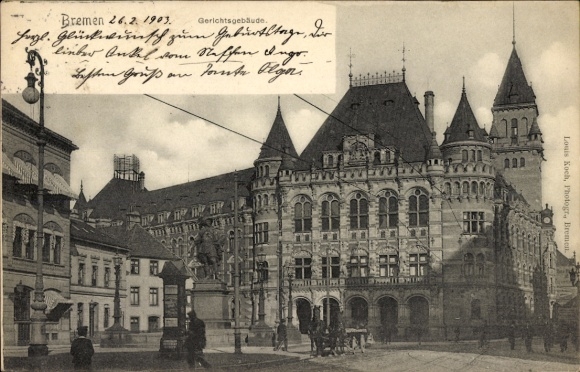 Bremen 26.2.1903. Gerichtsgebäude.
Herzl. Glückwunsch zum Geburtstage, Dir
lieber Onkel vom Neffen Ingo.
Besten Gruß an Tante Olga.
Louis Koch, Photogr., Bremen